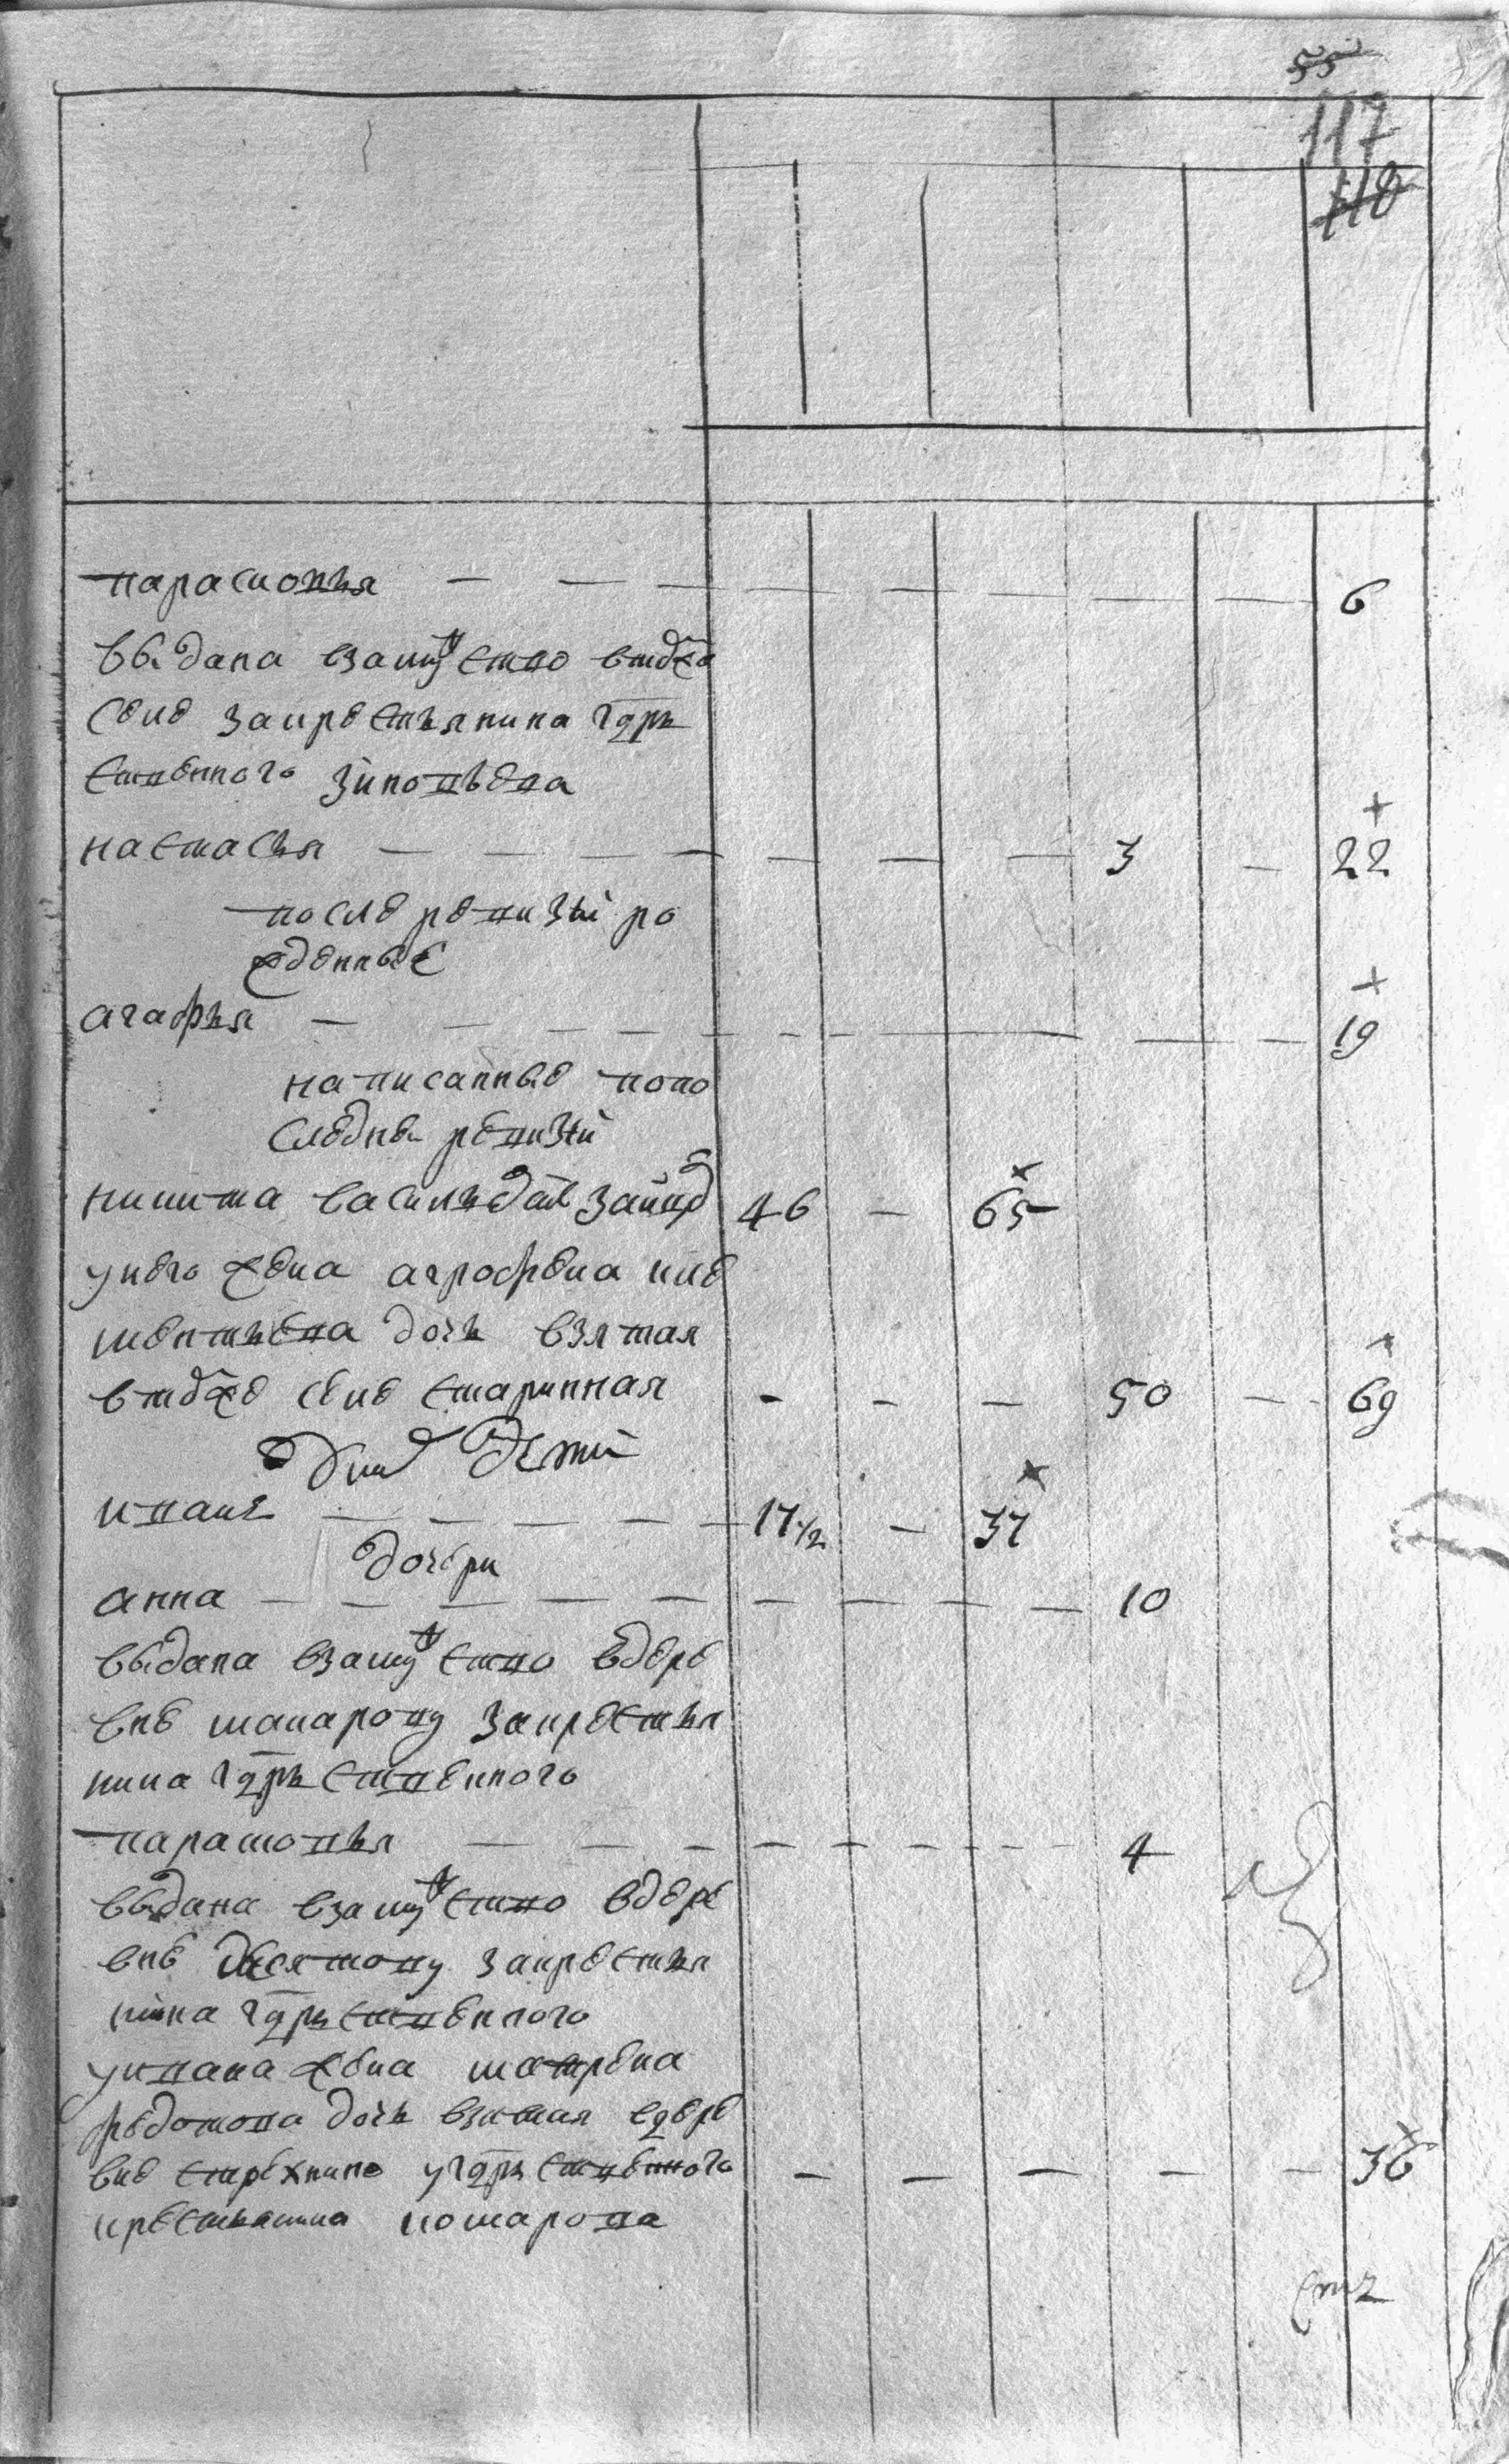 55
117
118
парасковья — — — — — — — — 6
выдана взамужство втоже
село закрестьянина гдрь
ственного зиновьева
настасья — — — — — — — 3 — 22
после ревизыи ро
жденные
агафья — — — — — — — — — 19
написанные попо
следней ревизыи
никита васильевъ 46 — 65
унего жена аграфена
дочь взятая
втоже селе старинная - - — 50 — 69
уних дети
иванъ — — — — 17 1/2 — 37
дочери
анна — — — — — — — — 10
выдана взамужство вдере
вне макарову закрестья
нина гдрьственного
парасковья — — — — — — 4
выдана взамужство вдере
вне десятову закрестья
нина гдрьственного
уивана жена матрена
федотова дочь взятая вдере
вне угдрьственного — — — — — 36
крестьянина комарова